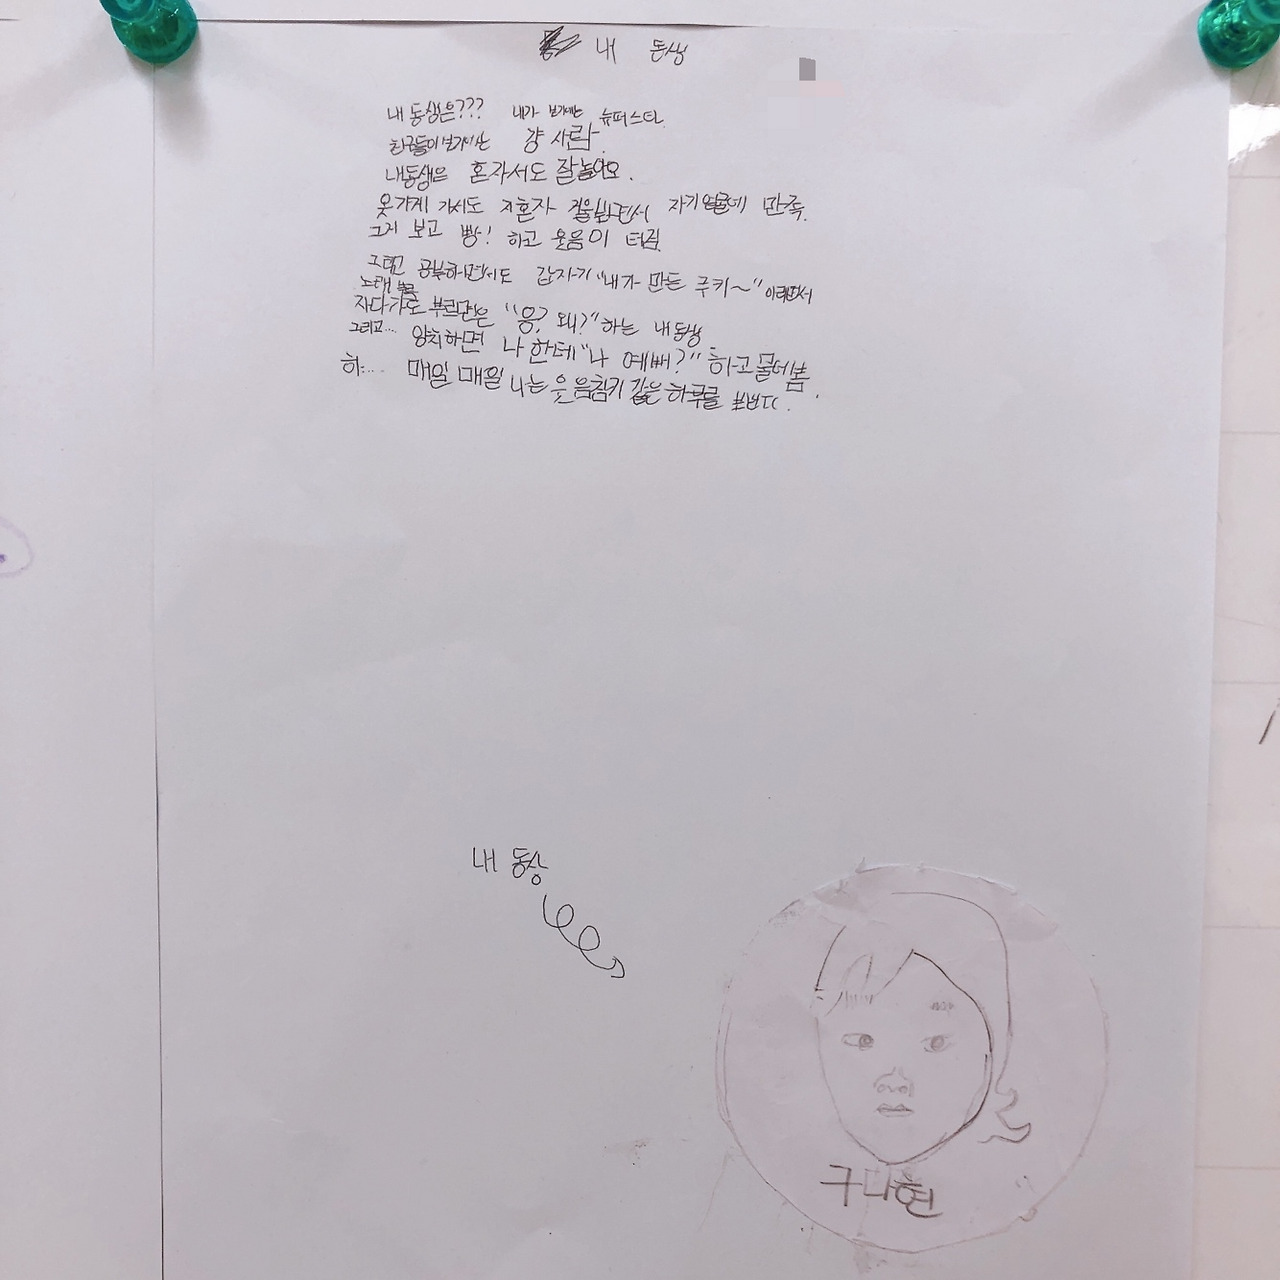 내 동생
내 동생은??? 내가 보기에는 슈퍼스타
친구들이 보기에는 걍 사람.
내동생은 혼자서도 잘놀아요.
옷가게 가서도 지혼자 거울보면서 자기얼굴에 만족.
그거 보고 빵! 하고 웃음이 터짐
그리고 공부하면서도 갑자기 "내가 만든 쿠키~" 이러면서
노래 부름
자다가도 부르면은 "응? 왜?" 하는 내동생
그리고... 양치하면 나한테 "나 예뻐?" 하고 물어봄.
하.... 매일 매일 나는 웃음참기 같은 하루를 보낸다.
내 동상
구나현